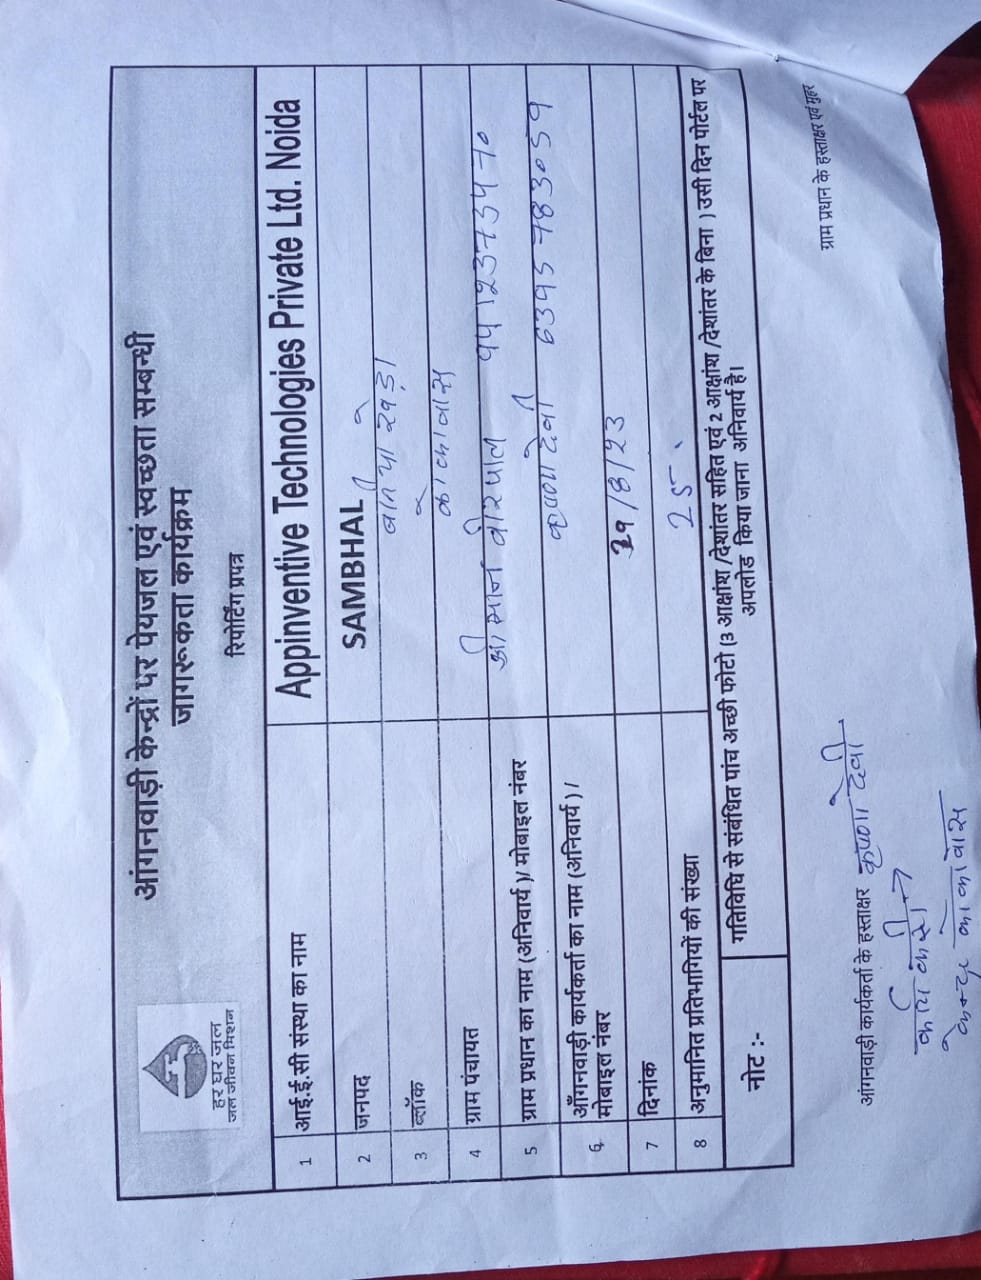 आंगनवाड़ी केन्द्रों पर पेयजल एवं स्वच्छता सम्बन्धी
जागरूकता कार्यक्रम
रिपोर्टिंग प्रपत्र
हर घर जल
जल जीवन मिशन
1 आई.ई.सी संस्था का नाम Appinventive Technologies Private Ltd. Noida
2 जनपद SAMBHAL
3 ब्लॉक
4 ग्राम पंचायत
5 ग्राम प्रधान का नाम (अनिवार्य )/ मोबाइल नंबर श्रीमान वीरपाल
6 आँगनवाड़ी कार्यकर्ता का नाम (अनिवार्य ) /
मोबाइल नंबर देवी 6395783059
7 दिनांक /8/23
8 अनुमानित प्रतिभागियों की संख्या 25
नोट :- गतिविधि से संबंधित पांच अच्छी फोटो (3 आक्षांश /देशांतर सहित एवं 2 आक्षांश /देशांतर के बिना ) उसी दिन पोर्टल पर
अपलोड किया जाना अनिवार्य है।
आंगनवाड़ी कार्यकर्ता के हस्ताक्षर देवी
ग्राम प्रधान के हस्ताक्षर एवं मुहर